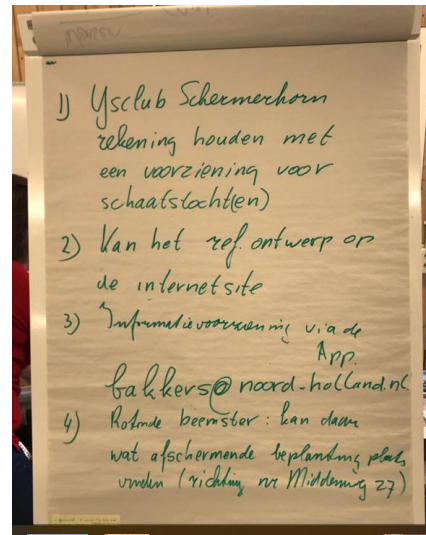 1) Ysclub Schermerhorn
rekening houden met
een voorziening voor
schaatstocht(en)
2) Kan het ref. ontwerp op
de internetsite
3) Informatievoorziening via de
App.
bakkers@noord-holland.nl.
4) Rotonde beemster: kan daar
wat afschermende beplanting plaats
vinden (richting nr Middenweg 27)